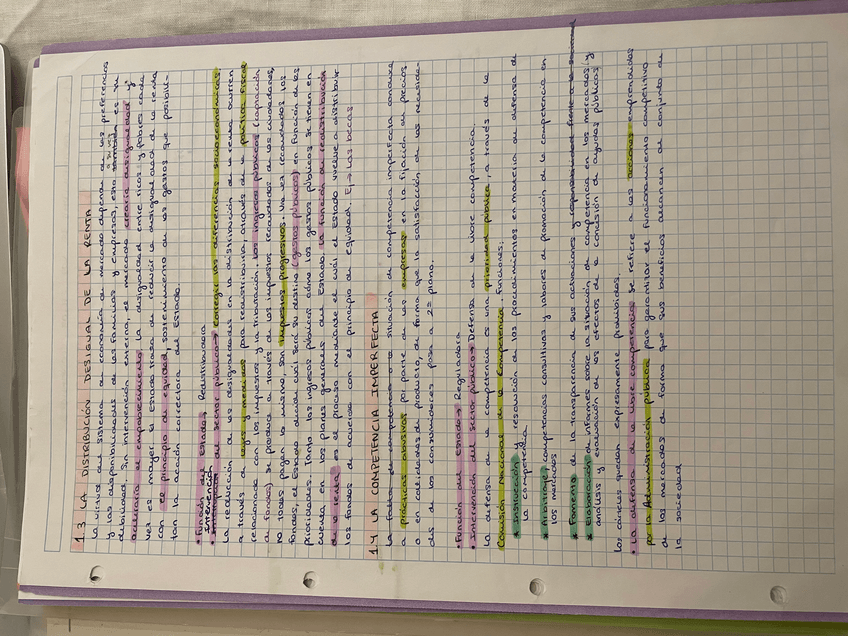 1.3 LA DISTRIBUCIÓN DESIGUAL DE LA RENTA
La virtud del sistema de economía de mercado depende de las preferencias
y las disponibilidades de las familias y empresas, esta a su vez es su
debilidad. Sin intervención externa, el mercado crearía desigualdad y
aceleraría el empobrecimiento. La desigualdad entre ricos y pobres cada
vez es mayor, el Estado trata de reducir la desigualdad de la renta
con el principio de equidad, sostenimiento de los gastos que posibili-
tan la acción correctora del Estado.
• Función del Estado → Redistribuidora
• Intervención del sector público → Corregir las diferencias socioeconómicas
La reducción de las desigualdades en la distribución de la renta ocurren
a través de leyes y medidas para redistribuirla, a través de la política fiscal
relacionada con los impuestos y la tributación. Los ingresos públicos (captación
de fondos) se produce a través de los impuestos recaudados de los ciudadanos,
no todos pagan lo mismo, son impuestos progresivos. Una vez recaudados los
fondos, el Estado decide cuál será su destino (gastos públicos) en función de las
prioridades. Tanto los ingresos públicos cómo los gastos públicos se tienen en
cuenta en los planes generales del Estado. La función de redistribución
de la renta es el proceso mediante el cual el Estado vuelve a distribuir
los fondos de acuerdo con el principio de equidad. Ej → Las becas
1.4 LA COMPETENCIA IMPERFECTA
La situación de competencia imperfecta conduce
a prácticas abusivas por parte de las empresas en la fijación de precios
o en calidades de producto, de forma que la satisfacción de las necesida-
des de los consumidores pasa a 2º plano.
• Función del Estado → Reguladora
• Intervención del sector público → Defensa de la libre competencia.
La defensa de la competencia es una prioridad pública, a través de la
Comisión Nacional de la Competencia. Funciones:
* Instrucción y resolución de los procedimientos en materia de defensa de
la competencia
* Arbitraje, competencias consultivas y labores de promoción de la competencia en
los mercados
* Fomento de la transparencia de sus actuaciones y
* Elaboración de informes sobre la situación de competencia en los mercados, y
análisis y evaluación de los efectos de la concesión de ayudas públicas
Los cárteles quedan expresamente prohibidos.
• La defensa de la libre competencia se refiere a las acciones emprendidas
por la Administración pública para garantizar el funcionamiento competitivo
de los mercados de forma que sus beneficios alcancen al conjunto de
la sociedad